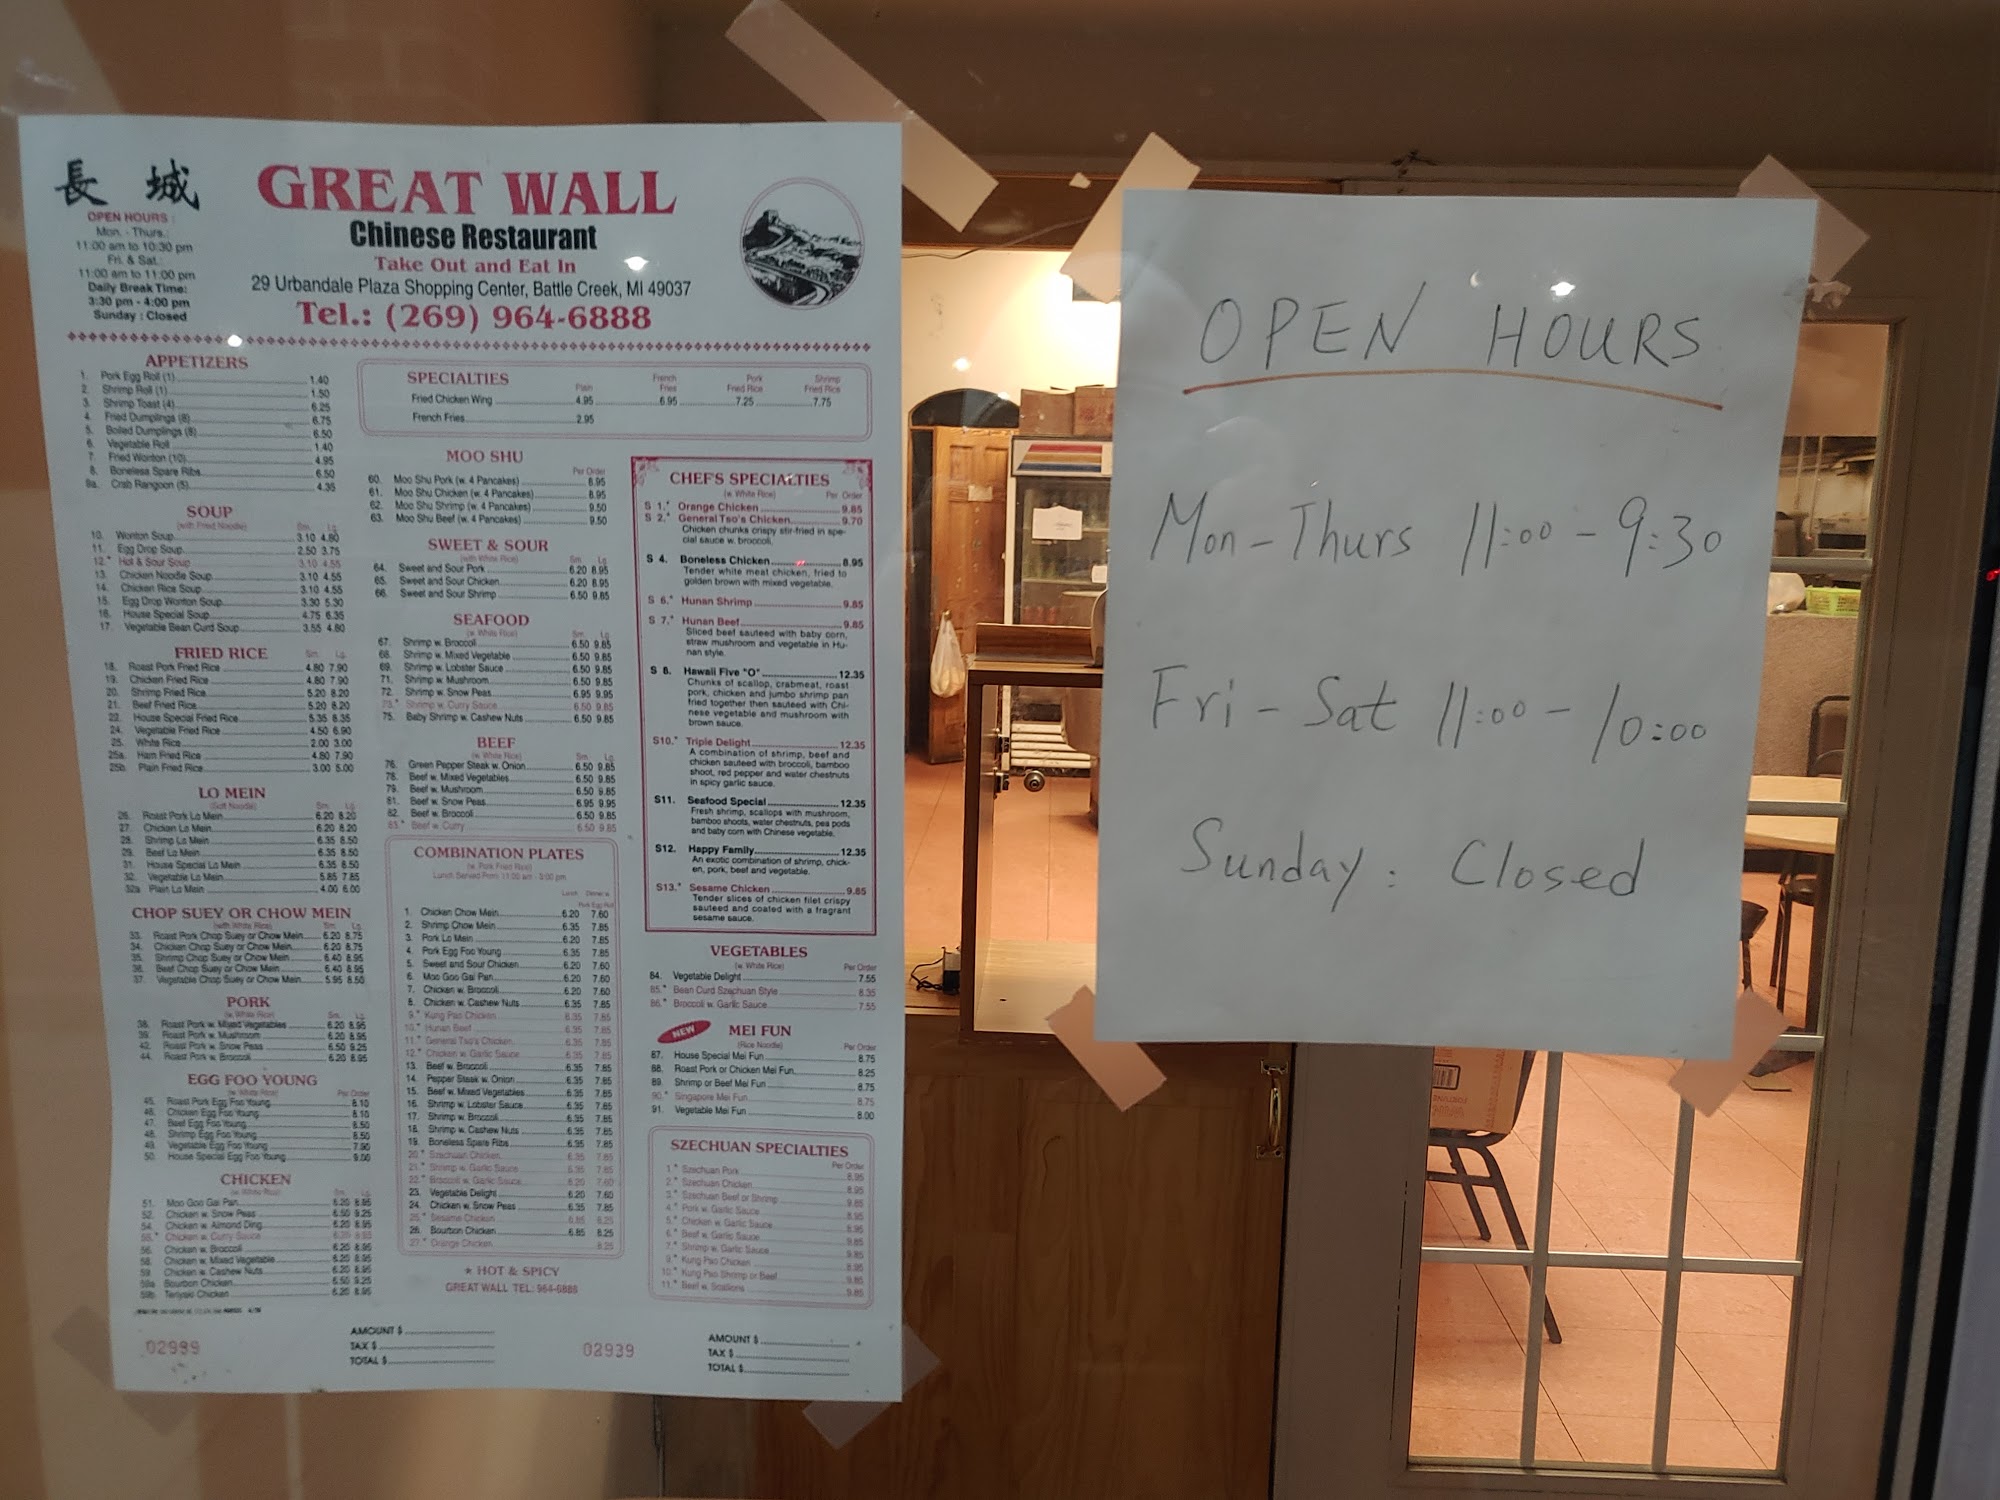 長 城
OPEN HOURS :
Mon. - Thurs.:
11:00 am to 10:30 pm
Fri. & Sat.:
11:00 am to 11:00 pm
Daily Break Time:
3:30 pm - 4:00 pm
Sunday : Closed
GREAT WALL
Chinese Restaurant
Take Out and Eat In
29 Urbandale Plaza Shopping Center, Battle Creek, MI 49037
Tel.: (269) 964-6888
APPETIZERS
1. Pork Egg Roll (1) 1.40
2. Shrimp Roll (1) 1.50
3. Shrimp Toast (4) 6.25
4. Fried Dumplings (8) 6.75
5. Boiled Dumplings (8) 6.50
6. Vegetable Roll 1.40
7. Fried Wonton (10) 4.95
8. Boneless Spare Ribs 6.50
9a. Crab Rangoon (5) 4.35
SOUP
(with Fried Noodle) Sm. Lg.
10. Wonton Soup 3.10 4.80
11. Egg Drop Soup 2.50 3.75
12.* Hot & Sour Soup 3.10 4.55
13. Chicken Noodle Soup 3.10 4.55
14. Chicken Rice Soup 3.10 4.55
15. Egg Drop Wonton Soup 3.30 5.30
16. House Special Soup 4.75 6.35
17. Vegetable Bean Curd Soup 3.55 4.80
FRIED RICE Sm. Lg.
18. Roast Pork Fried Rice 4.80 7.90
19. Chicken Fried Rice 4.80 7.90
20. Shrimp Fried Rice 5.20 8.20
21. Beef Fried Rice 5.20 8.20
22. House Special Fried Rice 5.35 8.35
24. Vegetable Fried Rice 4.50 6.90
25. White Rice 2.00 3.00
25a. Ham Fried Rice 4.80 7.90
25b. Plain Fried Rice 3.00 5.00
LO MEIN
(Soft Noodle) Sm. Lg.
26. Roast Pork Lo Mein 6.20 8.20
27. Chicken Lo Mein 6.20 8.20
28. Shrimp Lo Mein 6.35 8.50
29. Beef Lo Mein 6.35 8.50
31. House Special Lo Mein 6.35 8.50
32. Vegetable Lo Mein 5.85 7.85
32a Plain Lo Mein 4.00 6.00
CHOP SUEY OR CHOW MEIN
(with White Rice) Sm. Lg.
33. Roast Pork Chop Suey or Chow Mein 6.20 8.75
34. Chicken Chop Suey or Chow Mein 6.20 8.75
35. Shrimp Chop Suey or Chow Mein 6.40 8.95
36. Beef Chop Suey or Chow Mein 6.40 8.95
37. Vegetable Chop Suey or Chow Mein 5.95 8.50
PORK
(w. White Rice) Sm. Lg.
38. Roast Pork w. Mixed Vegetables 6.20 8.95
39. Roast Pork w. Mushroom 6.20 8.95
42. Roast Pork w. Snow Peas 6.50 9.25
44. Roast Pork w. Broccoli 6.20 8.95
EGG FOO YOUNG
(w. White Rice) Per Order
45. Roast Pork Egg Foo Young 8.10
46. Chicken Egg Foo Young 8.10
47. Beef Egg Foo Young 8.50
48. Shrimp Egg Foo Young 8.50
49. Vegetable Egg Foo Young 7.90
50. House Special Egg Foo Young 9.00
CHICKEN
(w. White Rice) Sm. Lg.
51. Moo Goo Gai Pan 6.20 8.95
52. Chicken w. Snow Peas 6.50 9.25
54. Chicken w. Almond Ding 6.20 8.95
55.* Chicken w. Curry Sauce 6.20 8.95
56. Chicken w. Broccoli 6.20 8.95
58. Chicken w. Mixed Vegetable 6.20 8.95
59. Chicken w. Cashew Nuts 6.20 8.95
59a Bourbon Chicken 6.50 9.25
59b Teriyaki Chicken 6.20 8.95
SPECIALTIES Plain French Fries Pork Fried Rice Shrimp Fried Rice
Fried Chicken Wing 4.95 6.95 7.25 7.75
French Fries 2.95
MOO SHU
Per Order
60. Moo Shu Pork (w. 4 Pancakes) 8.95
61. Moo Shu Chicken (w. 4 Pancakes) 8.95
62. Moo Shu Shrimp (w. 4 Pancakes) 9.50
63. Moo Shu Beef (w. 4 Pancakes) 9.50
SWEET & SOUR
(with White Rice) Sm. Lg.
64. Sweet and Sour Pork 6.20 8.95
65. Sweet and Sour Chicken 6.20 8.95
66. Sweet and Sour Shrimp 6.50 9.85
SEAFOOD
(w. White Rice) Sm. Lg.
67. Shrimp w. Broccoli 6.50 9.85
68. Shrimp w. Mixed Vegetable 6.50 9.85
69. Shrimp w. Lobster Sauce 6.50 9.85
71. Shrimp w. Mushroom 6.50 9.85
72. Shrimp w. Snow Peas 6.95 9.95
73.* Shrimp w. Curry Sauce 6.50 9.85
75. Baby Shrimp w. Cashew Nuts 6.50 9.85
BEEF
(w. White Rice) Sm. Lg.
76. Green Pepper Steak w. Onion 6.50 9.85
78. Beef w. Mixed Vegetables 6.50 9.85
79. Beef w. Mushroom 6.50 9.85
81. Beef w. Snow Peas 6.95 9.95
82. Beef w. Broccoli 6.50 9.85
83.* Beef w. Curry 6.50 9.85
COMBINATION PLATES
(w. Pork Fried Rice)
Lunch Served From: 11:00 am - 3:00 pm
Lunch Dinner w.
Pork Egg Roll
1. Chicken Chow Mein 6.20 7.60
2. Shrimp Chow Mein 6.35 7.85
3. Pork Lo Mein 6.20 7.85
4. Pork Egg Foo Young 6.35 7.85
5. Sweet and Sour Chicken 6.20 7.60
6. Moo Goo Gai Pan 6.20 7.60
7. Chicken w. Broccoli 6.20 7.60
8. Chicken w. Cashew Nuts 6.35 7.85
9.* Kung Pao Chicken 6.35 7.85
10.* Hunan Beef 6.35 7.85
11.* General Tso's Chicken 6.35 7.85
12.* Chicken w. Garlic Sauce 6.35 7.85
13. Beef w. Broccoli 6.35 7.85
14. Pepper Steak w. Onion 6.35 7.85
15. Beef w. Mixed Vegetables 6.35 7.85
16. Shrimp w. Lobster Sauce 6.35 7.85
17. Shrimp w. Broccoli 6.35 7.85
18. Shrimp w. Cashew Nuts 6.35 7.85
19. Boneless Spare Ribs 6.35 7.85
20.* Szechuan Chicken 6.35 7.85
21.* Shrimp w. Garlic Sauce 6.35 7.85
22.* Broccoli w. Garlic Sauce 6.20 7.60
23. Vegetable Delight 6.20 7.60
24. Chicken w. Snow Peas 6.35 7.85
25.* Sesame Chicken 6.85 8.25
26. Bourbon Chicken 6.85 8.25
27.* Orange Chicken 8.25
★ HOT & SPICY
GREAT WALL TEL: 964-6888
CHEF'S SPECIALTIES
(w. White Rice) Per Order
S 1.* Orange Chicken 9.85
S 2.* General Tso's Chicken 9.70
Chicken chunks crispy stir-fried in spe-
cial sauce w. broccoli.
S 4. Boneless Chicken 8.95
Tender white meat chicken, fried to
golden brown with mixed vegetable.
S 6.* Hunan Shrimp 9.85
S 7.* Hunan Beef 9.85
Sliced beef sauteed with baby corn,
straw mushroom and vegetable in Hu-
nan style.
S 8. Hawaii Five "O" 12.35
Chunks of scallop, crabmeat, roast
pork, chicken and jumbo shrimp pan
fried together then sauteed with Chi-
nese vegetable and mushroom with
brown sauce.
S10.* Triple Delight 12.35
A combination of shrimp, beef and
chicken sauteed with broccoli, bamboo
shoot, red pepper and water chestnuts
in spicy garlic sauce.
S11. Seafood Special 12.35
Fresh shrimp, scallops with mushroom,
bamboo shoots, water chestnuts, pea pods
and baby corn with Chinese vegetable.
S12. Happy Family 12.35
An exotic combination of shrimp, chick-
en, pork, beef and vegetable.
S13.* Sesame Chicken 9.85
Tender slices of chicken filet crispy
sauteed and coated with a fragrant
sesame sauce.
VEGETABLES
(w. White Rice) Per Order
84. Vegetable Delight 7.55
85.* Bean Curd Szechuan Style 8.35
86.* Broccoli w. Garlic Sauce 7.55
NEW MEI FUN
(Rice Noodle) Per Order
87. House Special Mei Fun 8.75
88. Roast Pork or Chicken Mei Fun 8.25
89. Shrimp or Beef Mei Fun 8.75
90.* Singapore Mei Fun 8.75
91. Vegetable Mei Fun 8.00
SZECHUAN SPECIALTIES
Per Order
1.* Szechuan Pork 8.95
2.* Szechuan Chicken 8.95
3.* Szechuan Beef or Shrimp 9.85
4.* Pork w. Garlic Sauce 8.95
5.* Chicken w. Garlic Sauce 8.95
6.* Beef w. Garlic Sauce 9.85
7.* Shrimp w. Garlic Sauce 9.85
9.* Kung Pao Chicken 8.95
10.* Kung Pao Shrimp or Beef 9.85
11.* Beef w. Scallions 9.85
02939
AMOUNT $
TAX $
TOTAL $
02939
AMOUNT $
TAX $
TOTAL $
OPEN HOURS
Mon - Thurs 11:00 - 9:30
Fri - Sat 11:00 - 10:00
Sunday : Closed